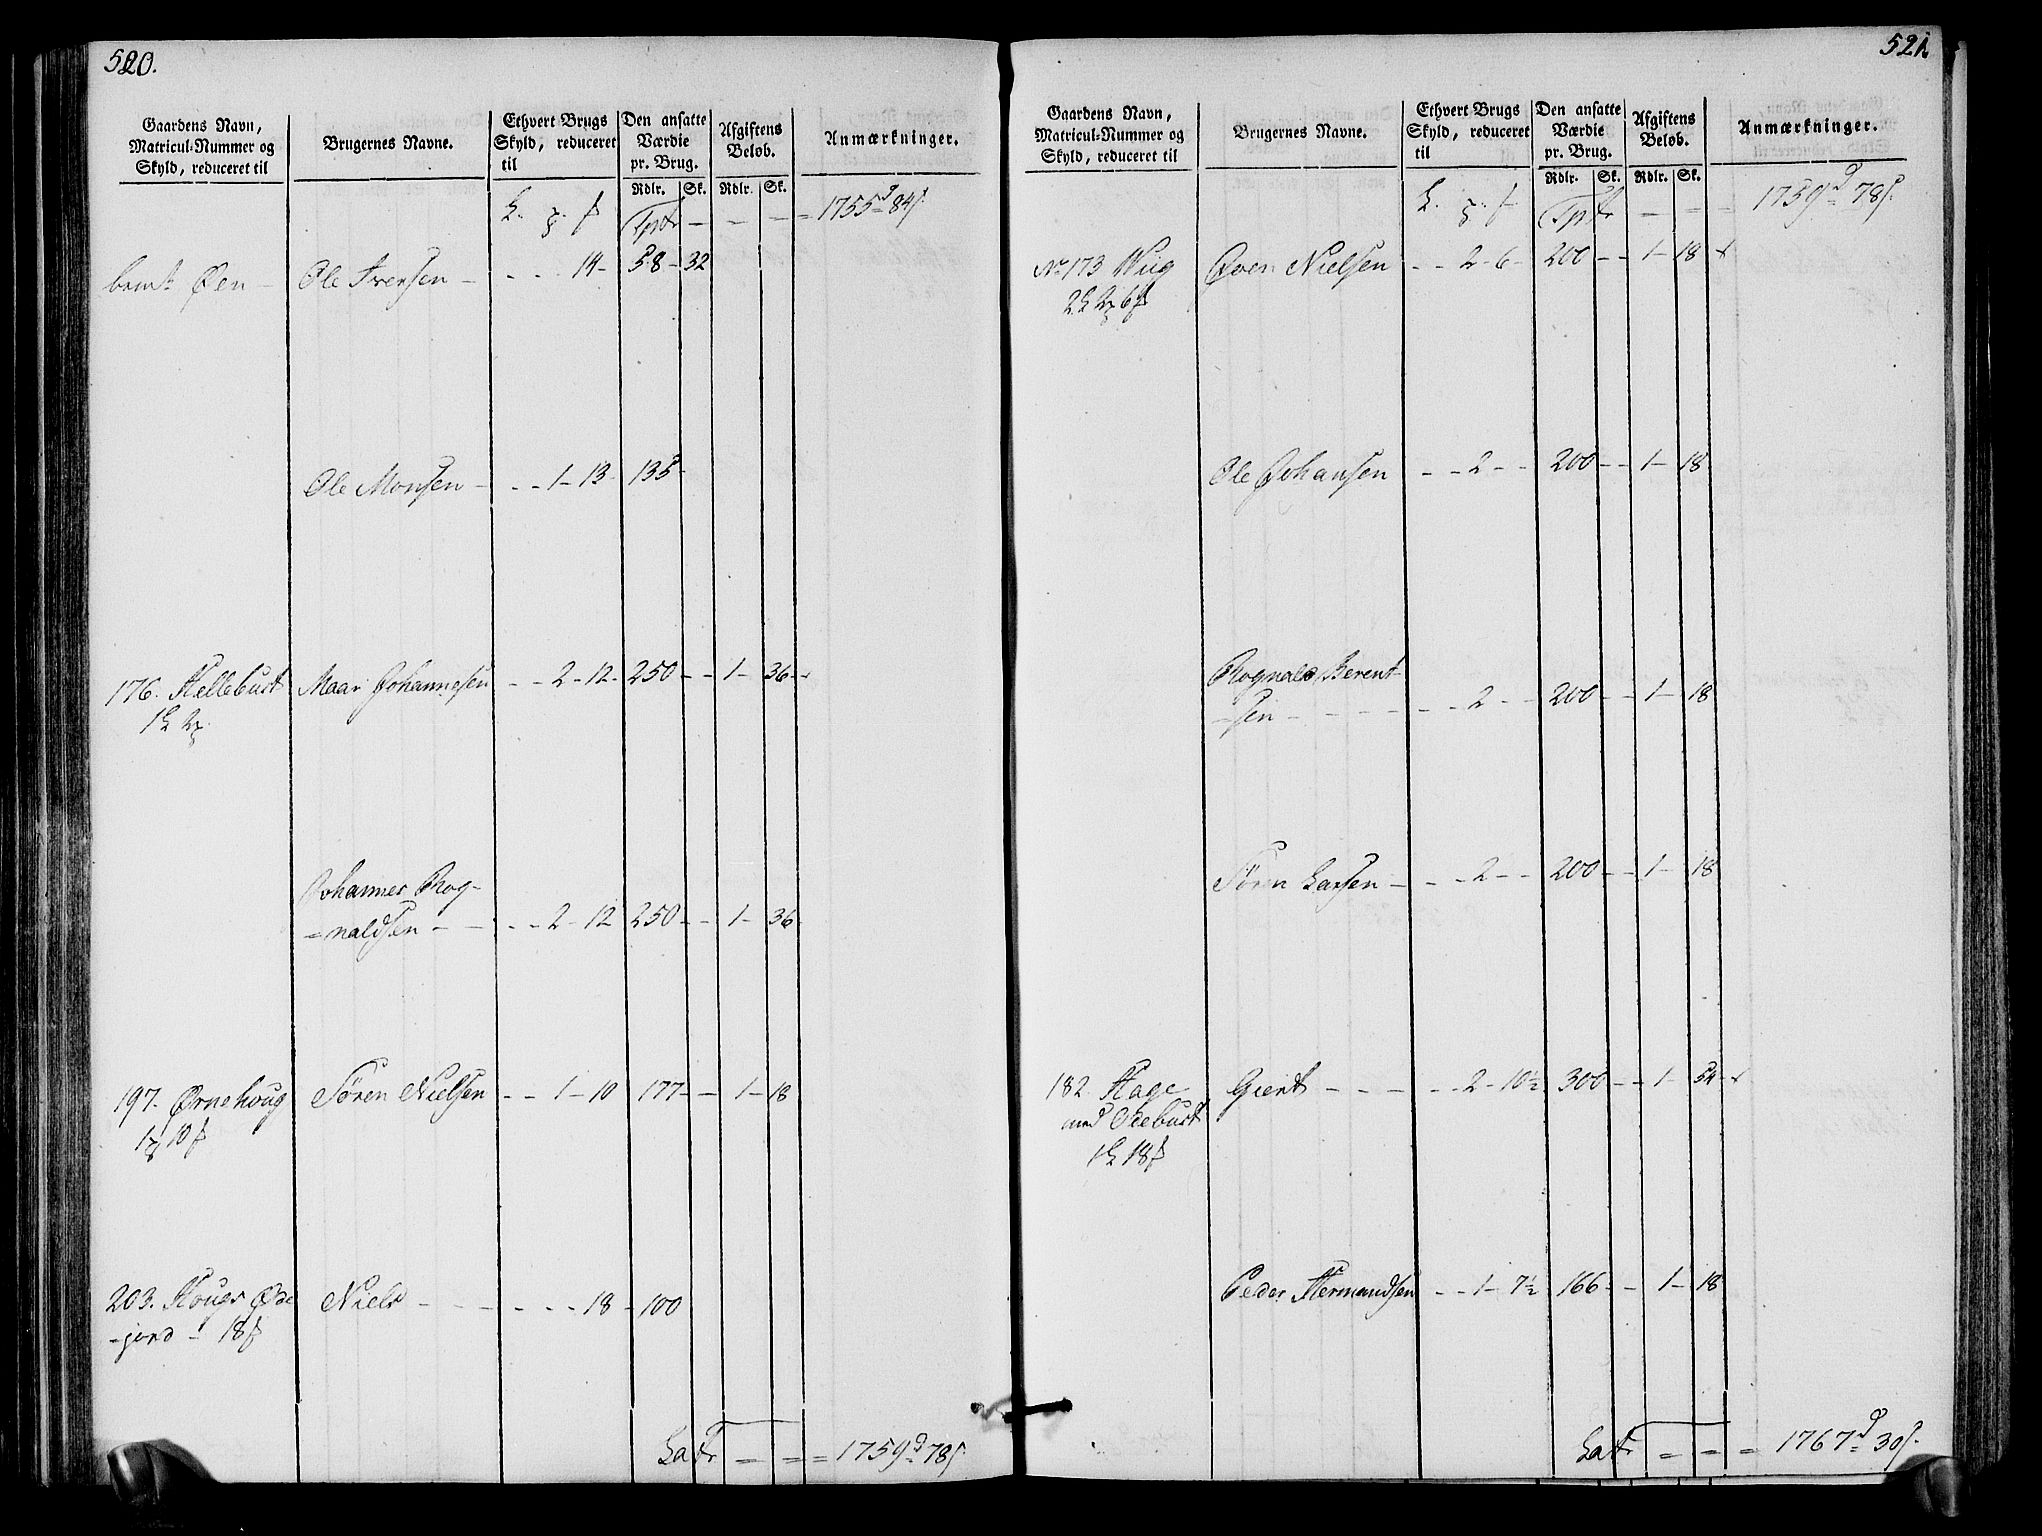 520.
Gaardens Navn, Matricul-Nummer og Skyld, reduceret til
Brugernes Navne.
Ethvert Brugs Skyld, reduceret til
Den ansatte Værdie pr. Brug.
Afgiftens Beløb.
Anmærkninger.
Rdlr. Sk. Rdlr. Sk.
Tptr - - - = 1755 d 84 s.
bemt. Øen - Ole Iversen - - - - 14 - 58 - 32
Ole Monsen - - - 1 - 13 - 135 -
176. Hellebust Maas Johannesen - - 2 - 12 - 250 - - 1 - 36 -
Johannes Rog-
=naldsen - - - - 2 - 12 250 - - 1 - 36
197. Ørnehoug Søren Nielsen - - 1 - 10 177 - - 1 - 18
203. Hougs Øde Niels - - - - - - 18 - 100
-jord - 18
Latr = = = 1759 d 78 s.
521.
Gaardens Navn, Matricul-Nummer og Skyld, reduceret til
Brugernes Navne.
Ethvert Brugs Skyld, reduceret til
Den ansatte Værdie pr. Brug.
Afgiftens Beløb.
Anmærkninger.
Rdlr. Sk. Rdlr. Sk.
Tptr = = = 1759 d 78 s.
No 173 Wiig Sven Nielsen - - 2 - 6 - 200 - - 1 - 18
Ole Johansen - - 2 - - 200 - - 1 - 18
Rognald Berent-
-sen - - - - - - 2 - - 200 - - 1 - 18
Søren Larsen - - - 2 - - 200 - - 1 - 18
182. Hage Gient - - - - - 2 - 10½ 300 - - 1 - 54
med Seebust
Peder Hermandsen - - 1 - 7½ 166 - - 1 - 18
Latr = = = 1767 d 30 s.